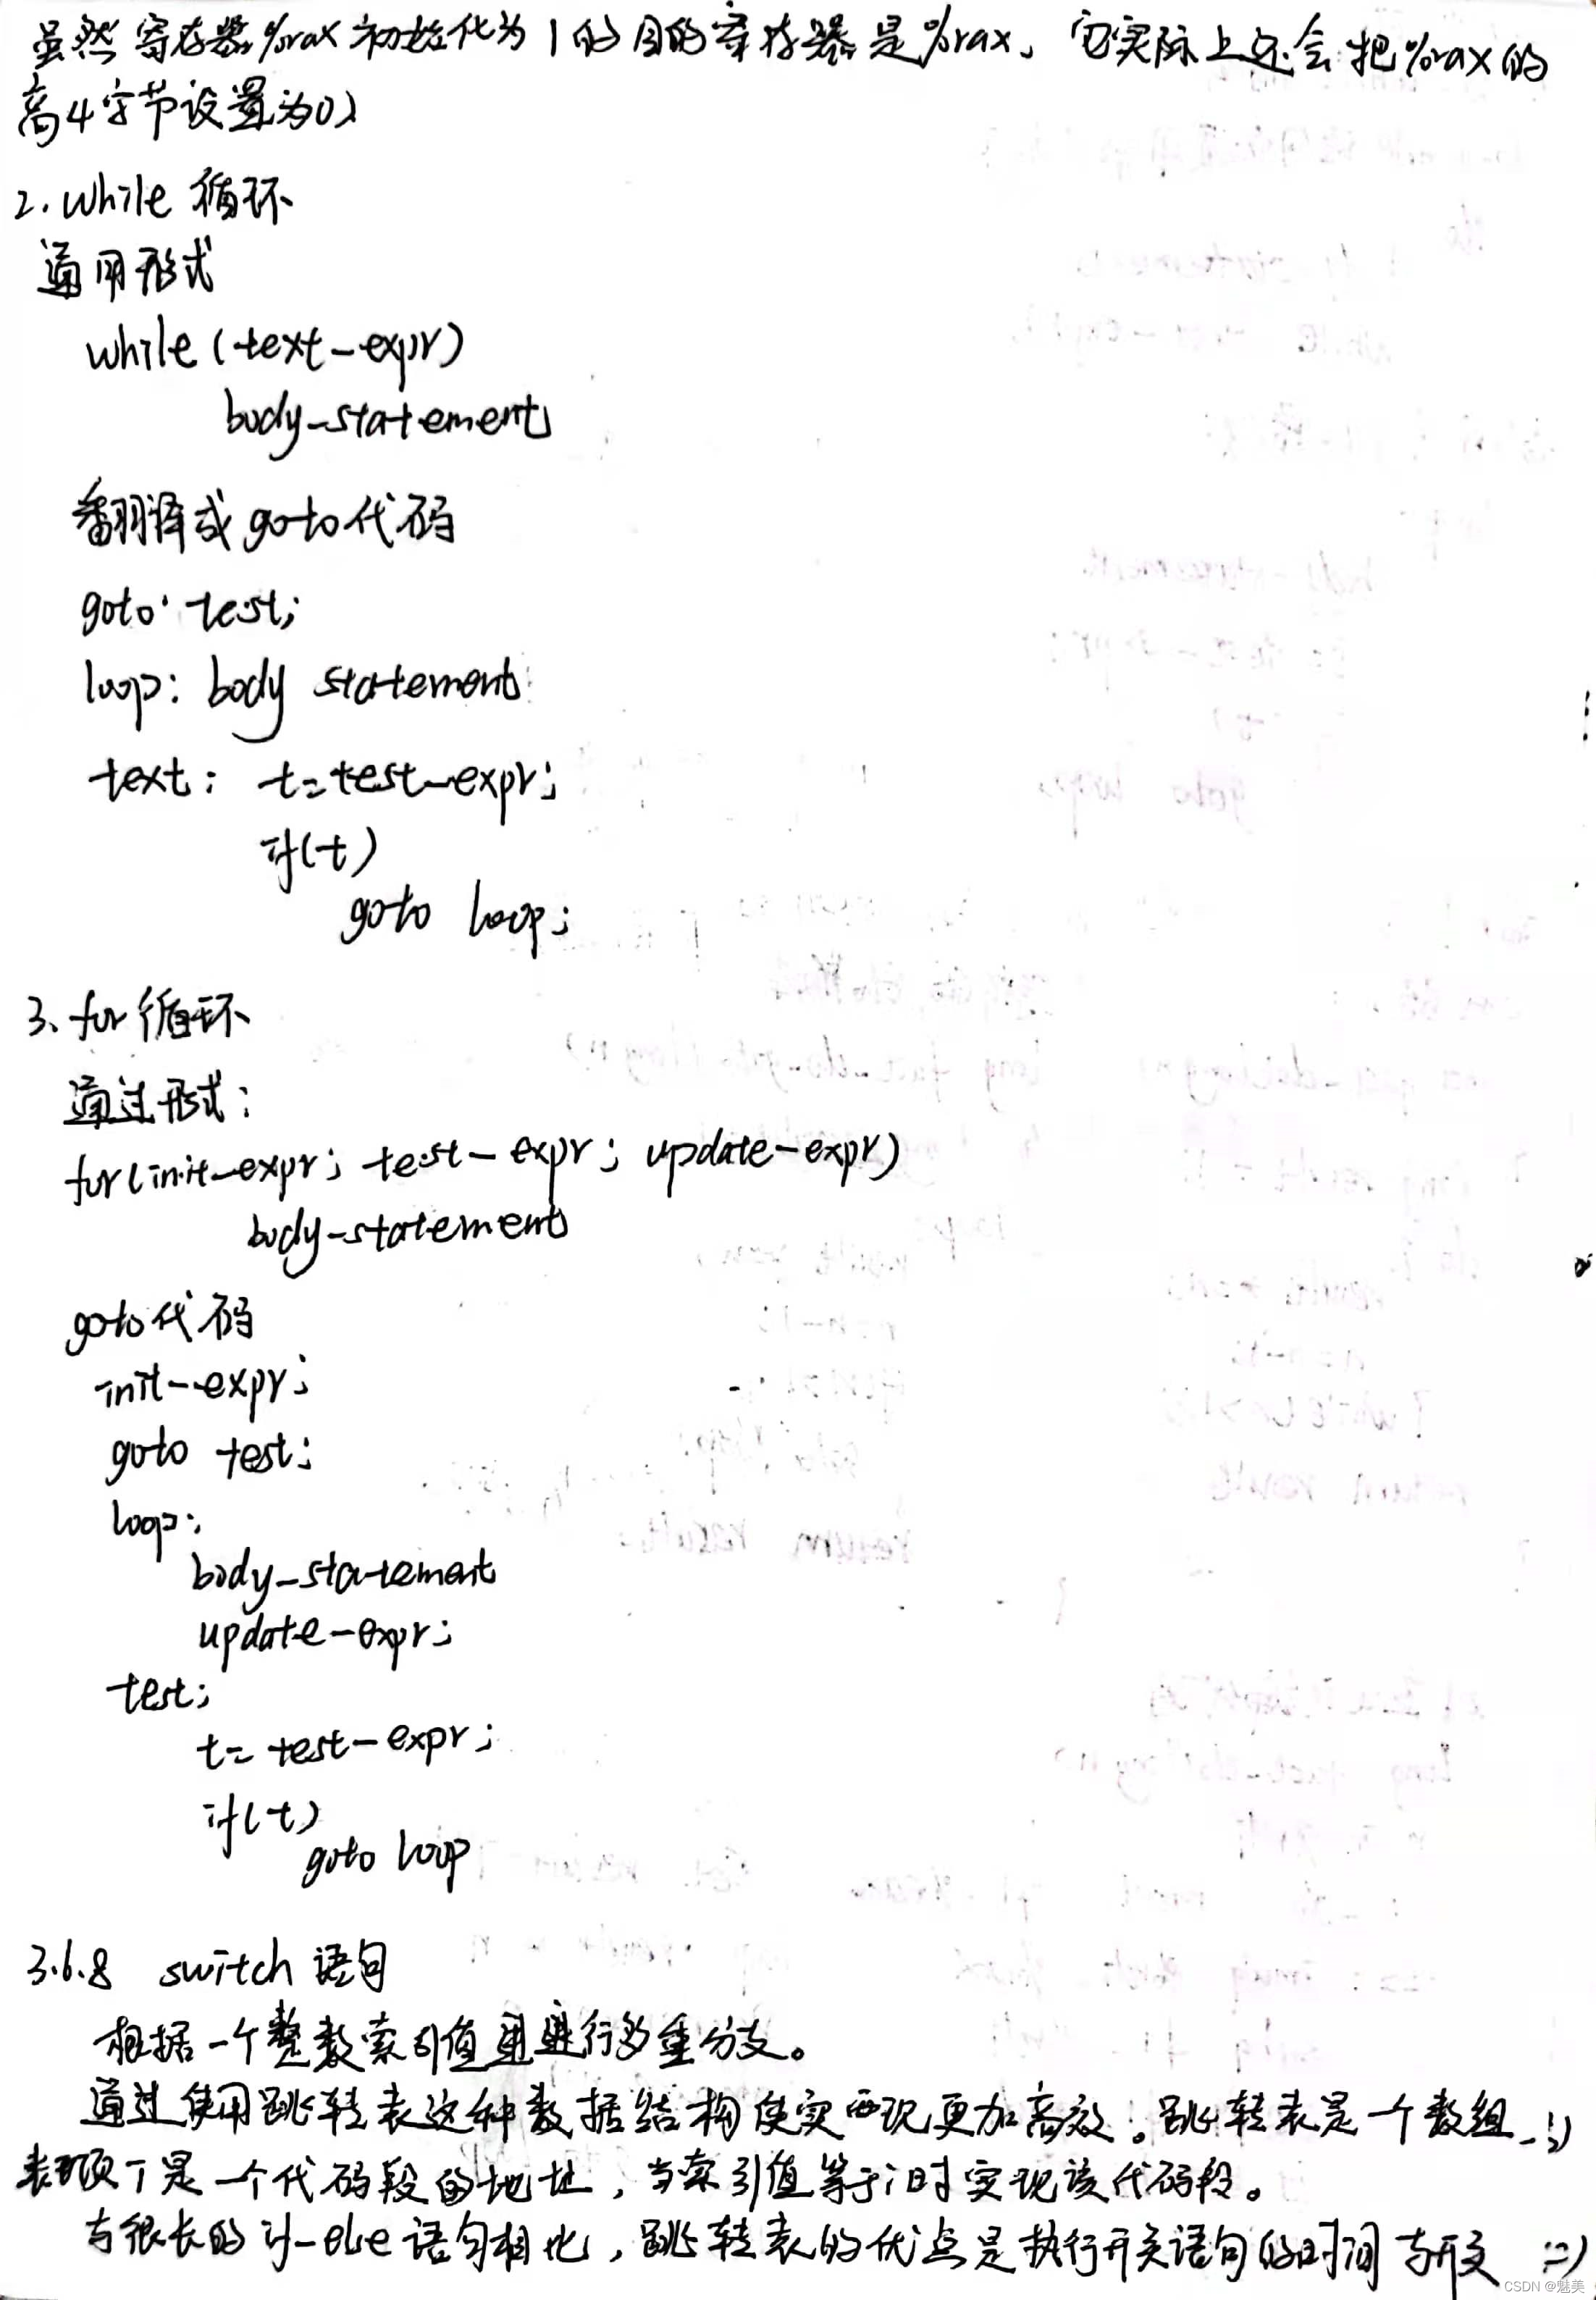 虽然寄存器%rax初始化为1的目的寄存器是%rax、它实际上还会把%rax的
高4字节设置为0)
2.while循环
通用形式
while(text-expr)
body-statement
翻译成goto代码
goto test;
loop: body statement
text: t=test-expr;
if(t)
goto loop;
3. for循环
通过形式:
for(init-expr; test-expr; update-expr)
body-statement
goto代码
init-expr;
goto test;
loop:
body-statement
update-expr;
test;
t= test-expr;
if(t)
goto loop
3.6.8 switch 语句
根据一个整数索引值进行多重分支。
通过使用跳转表这种数据结构使实现更加高效。跳转表是一个数组
表项i是一个代码段的地址，当索引值等于i时实现该代码段。
与很长的if-else语句相比，跳转表的优点是执行开关语句的时间与开
CSDN @魅美